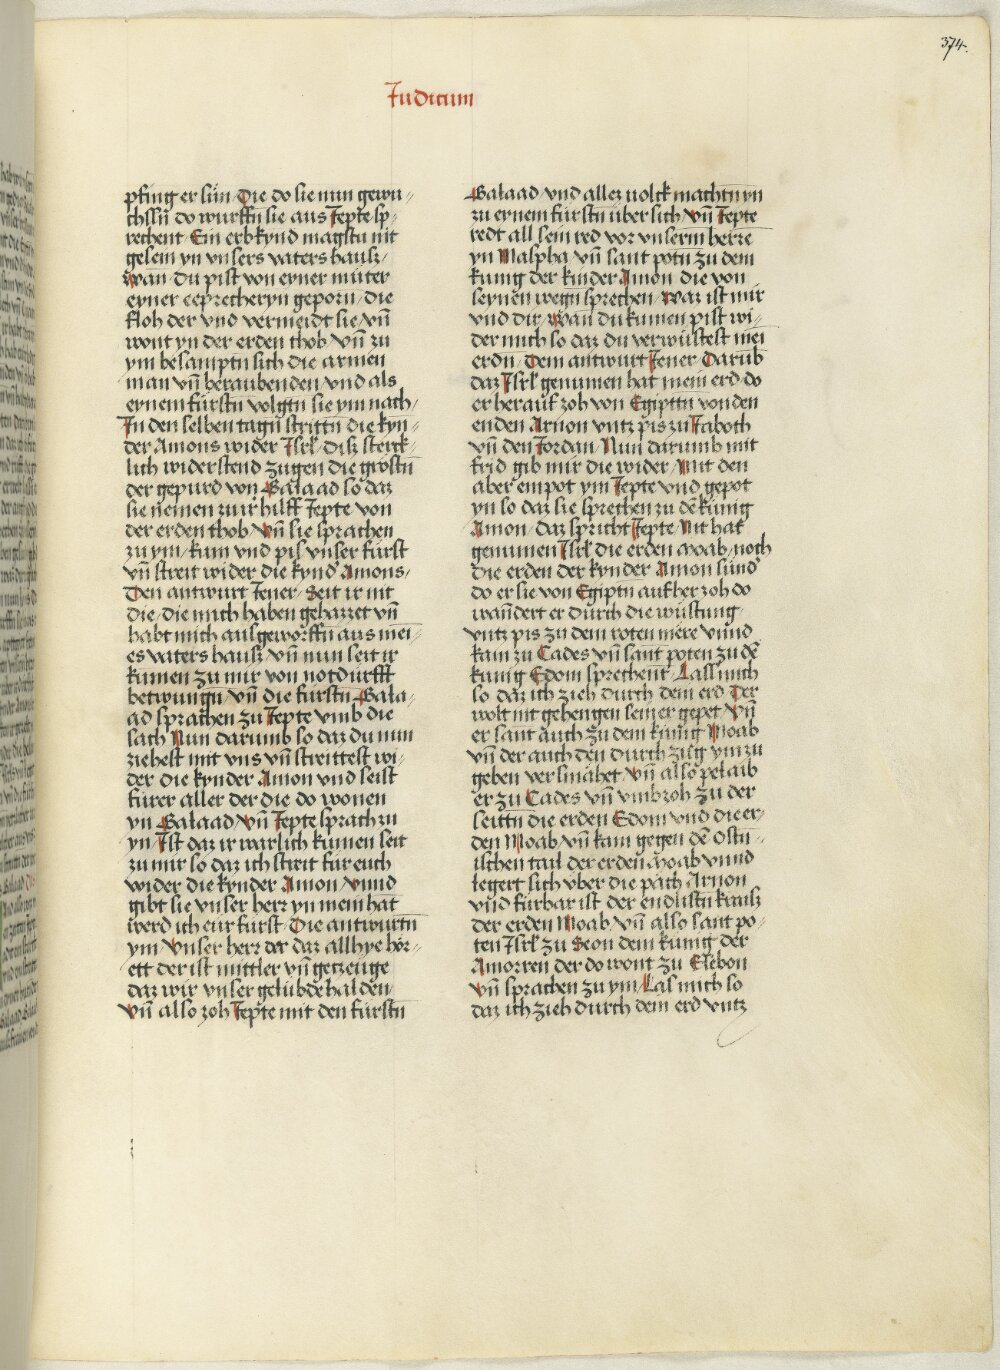 374.
Judicum
pfing er sün Die do sie nun gewu⸗
chssn̄ do wurffn̄ sie aus Jepte sp⸗
rechent Ein erbkynd magstu nit
gesein yn vnsers vaters hausz⸗
wan du pist von eyner müter
eyner eeprecheryn geporn / die
floh der vnd vermeidt sie / vn̄
wont yn der erden thob vn̄ zu
ym besamptn̄ sich die armen
man vn̄ beraubenden / vnd als
eynem fürstn̄ volgtn̄ sie ym nach /
In den selben tagn̄ strittn̄ die kyn⸗
der Amons wider Jsrl̄ disz sterck⸗
lich widerstend zugen die gröstn̄
der gepurd von Galaad so daz
sie nemen zu ir hilff Jepte von
der erden thob Vn̄ sie sprachen
zu ym / kum vnd pis vnser fürst
vn̄ streit wider die kynd Amons /
Den antwurt Jener / Seit ir nit
die / die mich haben gehazzet vn̄
habt mich ausgeworffn̄ aus mei⸗
es vaters hausz vn̄ nun seit ir
kumen zu mir von notdurfft
betwungn̄ / vn̄ die fürstn̄ Gala⸗
ad sprachen zu Jepte vmb die
sach Nun darumb so daz du nun
ziehest mit vns vn̄ strittest wi⸗
der die kynder Amon vnd seist
fürer aller der die do wonen
yn Galaad / Vn̄ Jepte sprach zu
yn / Ist daz ir warlich kumen seit
zu mir so daz ich streit für euch
wider die kynder Amon / vnnd
gibt sie vnser herr yn mein hāt
werd ich eur fürst Die antwurtn̄
ym Vnser herr der daz allhye hör⸗
ett der ist mittler vn̄ getzeuge
daz wir vnser gelübde halden
Vn̄ also zoh Jepte mit den fürstn̄
Galaad / vnd allez uolck machtn̄ yn
zu eynem fürstn̄ über sich / Vn̄ Jepte
redt all sein red vor vnserm herre
yn Maspha vn̄ sant potn̄ zu dem
kunig der kinder Amon die von
seynen wegn̄ sprechen / Waz ist mir
vnd dir / Wan du kumen pist wi⸗
der mich so daz du verwüstest mei
erdn̄ / Dem antwurt Jener Darūb
daz Jsrl̄ genumen hat mein erd do
er herauf zoh von Egiptn̄ von den
enden Arnon vntz pis zu Jaboch
vn̄ den Jordan / Nun darumb mit
frid gib mir die wider / Mit den
aber empot ym Jepte vnd gepot
yn so daz sie sprechen zu dē kunig
Amon Daz spricht Jepte Nit hat
genumen Jsrl̄ die erden moab / noch
die erden der kynder Amon sund
do er sie von Egiptn̄ auf her zoh do
wandert er durch die wüstung
vntz pis zu dem roten mere vnnd
kam zu Cades vn̄ sant poten zu dē
kunig Edom sprechent / Lass mich
so daz ich zieh durch dem erd Der
wolt nit gehengen seiner gepet Vn̄
er sant auch zu dem kunig Moab
vn̄ der auch den durchzug ym zu
geben versmahet Vn̄ also pelaib
er zu Cades vn̄ vmbzoh zu der
seittn̄ die erden Edom vnd die er⸗
den Moab vn̄ kam gegen dē Ostn̄⸗
ischen tail der erden Moab vnnd
legert sich vber die pach Arnon
vnd fürbar ist der endlistn̄ kausz
der erden Moab / vn̄ also sant po⸗
ten Jsrl̄ zu Seon dem kunig der
Amorren der do wont zu Esebon
vn̄ sprachen zu ym / Las mich so
daz ich zieh durch dem erd vntz